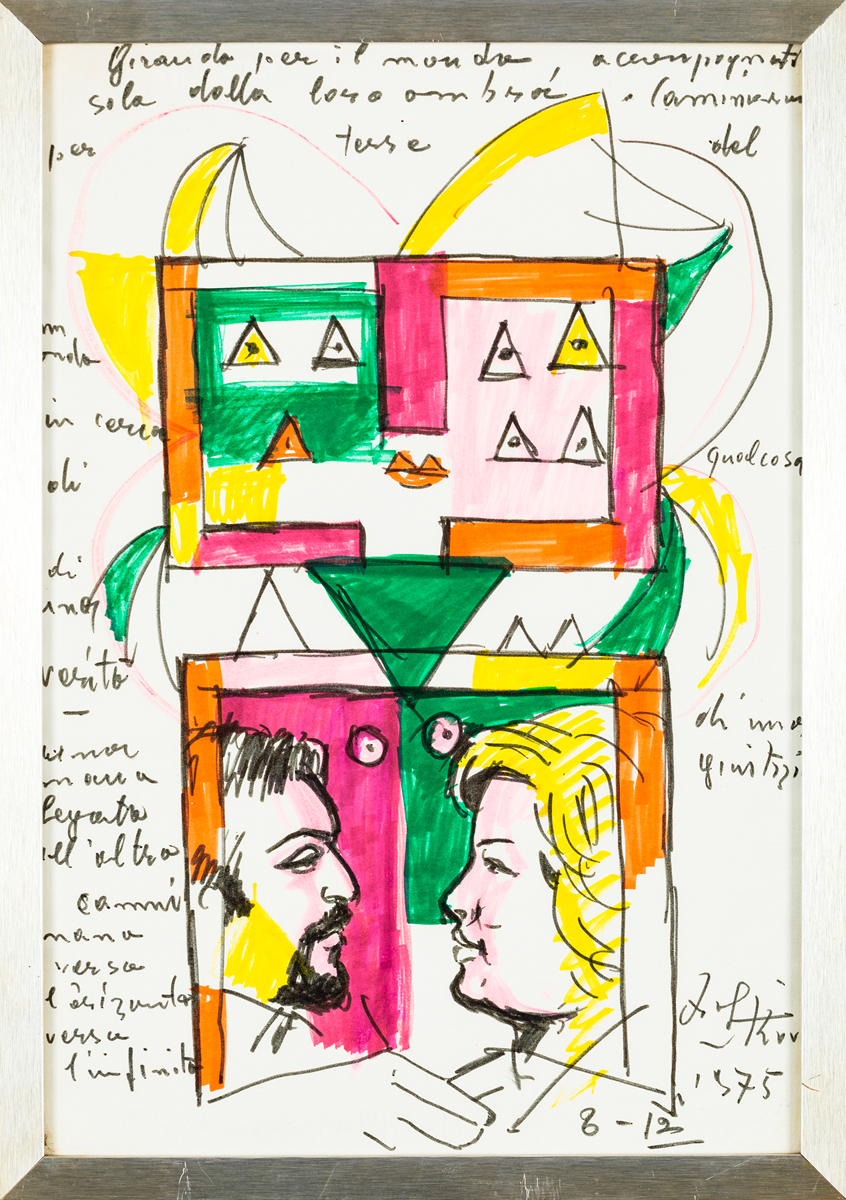 Girando per il mondo, accompagnati
sola dalla loro ombra e camminan
per terre del
m
ondo
in cerca
di
qualcosa
di
una
verità
—
di una
giustizi
uno
mano
legato
all'altro
cammi
nano
verso
l'orizonte
verso
l'infinito
1975
8-12